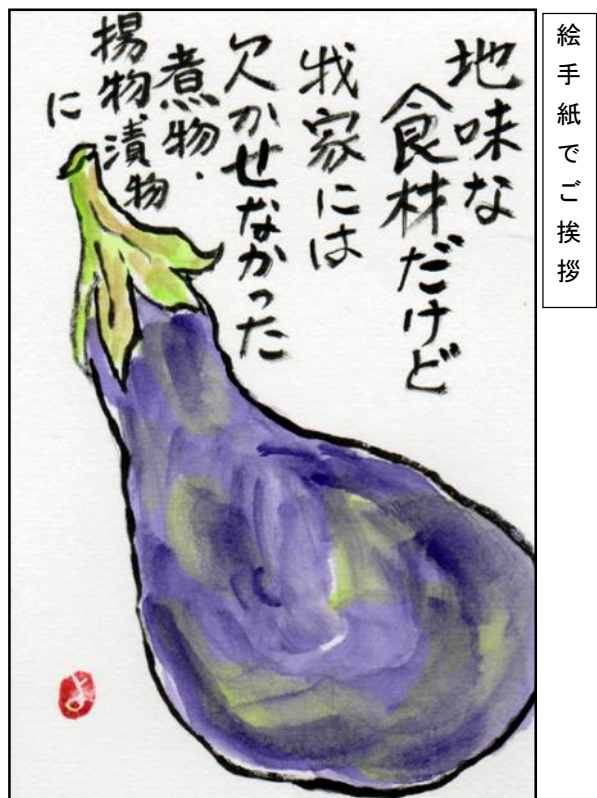 絵手紙でご挨拶
地味な
食材だけど
我家には
欠かせなかった
煮物・
揚物漬物
に
よ